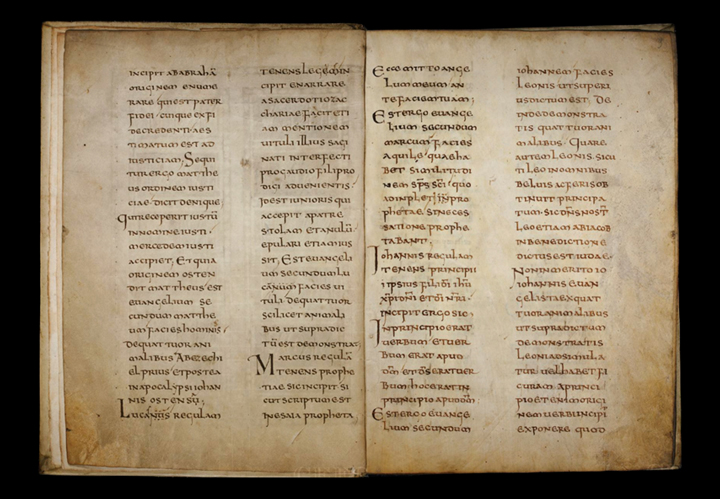 INCIPIT AB ABRAHĀ
ORIGINEM ENUME
RARE QUI EST PATER
FIDEI · CUIQUE EX FI
DE CREDENTI · AES
TIMATUM EST AD
IUSTICIAM; SEQUI
TUR ERGO MATTHE
US ORDINEM IUSTI
CIAE · DICIT DENIQUE;
QUI RECEPERIT IUSTŪ
IN NOMINE IUSTI ·
MERCEDEM IUSTI
ACCIPIET; ET QUIA
ORIGINEM OSTEN
DIT MATTHEUS EST
EUANGELIUM SE
CUNDUM MATTHE
UM FACIES HOMINIS
DE QUATTUOR ANI
MALIBUS AB EZECHI
EL PRIUS ET POSTEA
IN APOCALYPSI IOHAN
NIS OSTENSŪ;
LUCANUS REGULAM
TENENS LEGEM IN
CIPIT ENARRARE
A SACERDOTIO ZAC
CHARIAE FACIT ETI
AM MENTIONEM
UITULI ILLIUS SAGI
NATI INTERFECTI
PRO GAUDIO FILII PRO
DIGI ADUENIENTIS ·
ID EST IUNIORIS QUI
ACCEPIT A PATRE
STOLAM ET ANULŪ ·
EPULARI ETIAM IUS
SIT; EST EUANGELI
UM SECUNDUM LU
CANUM FACIES UI
TULI DE QUATTUOR
SCILICET ANIMALI
BUS UT SUPRA DIC
TŪ EST DEMONSTRAT;
MARCUS REGULĀ
TENENS PROPHE
TIAE SIC INCIPIT SI
CUT SCRIPTUM EST
IN ESAIA PROPHETA
ECCE MITTO ANGE
LUM MEUM AN
TE FACIEM TUAM;
EST ERGO EUANGE
LIUM SECUNDUM
MARCUM FACIES
AQUILE · QUAE HA
BET SIMILITUDI
NEM SP̄S SC̄I · QUO
ADINPLETI
PHETAE SINE CES
SATIONE PROPHE
TABANT;
IOHANNIS REGULAM
TENENS PRINCIPII
IPSIUS FILII DĪ IHŪ
INCIPIT ERGO SIC ·
IN PRINCIPIO ERAT
UERBUM ET UER
BUM ERAT APUD
DM̄ ET DS̄ ERAT UER
BUM · HOC ERAT IN
PRINCIPIO APUD DM̄
EST ERGO EUANGE
LIUM SECUNDUM
IOHANNEM FACIES
LEONIS UT SUPERI
US DICTUM EST · DE
INDE DEMONSTRA
TIS QUATTUOR ANI
MALIBUS · QUARE
AUTEM LEONIS · SICU
TI LEO IN OMNIBUS
BELUIS AC FERIS OB
TINUIT PRINCIPA
TUM · SIC DN̄S NOST
LEO ETIAM AB IACOB
IN BENEDICTIONE
DICTUS EST IUDAE ·
NON INMERITO IO
IOHANNIS EUAN
GELISTA EX QUAT
TUOR ANIMALIBUS
UT SUPRA DICTUM
DEMONSTRATIS
LEONI ADSIMILA
TUR UEL HABET FI
GURAM · A PRINCI
PIO ETENIM ORIGI
NEM UERBI INCIPĪ
EXPONERE QUOD